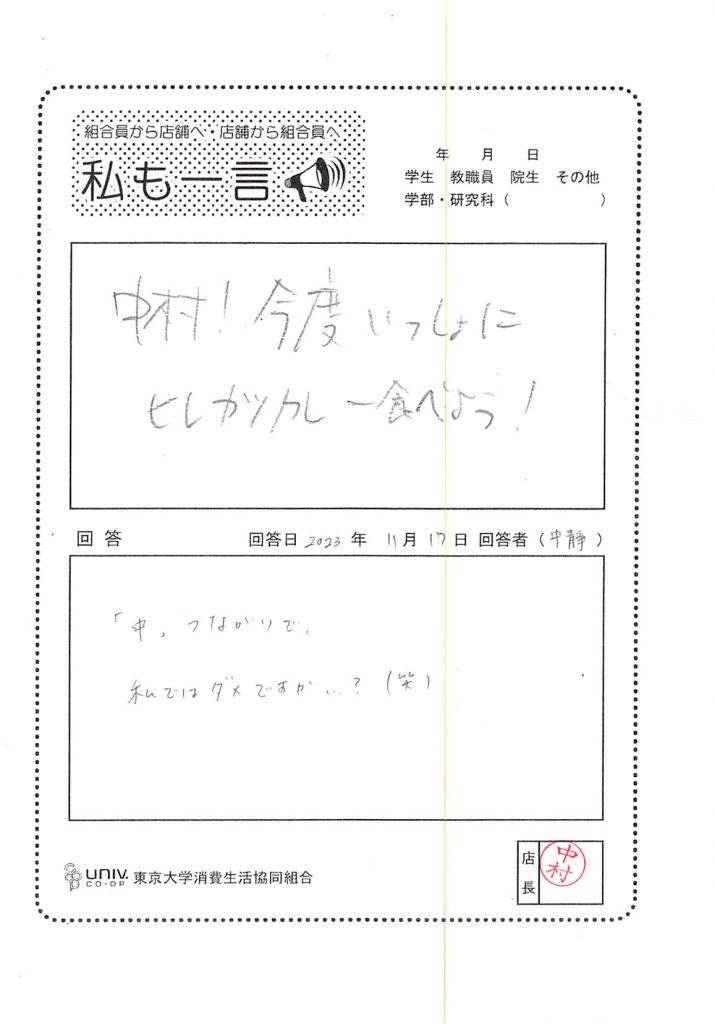 組合員から店舗へ・店舗から組合員へ
私も一言
年 月 日
学生 教職員 院生 その他
学部・研究科（ ）
中村！今度いっしょに
ヒレカツカレー食べよう！
回答 回答日 2023 年 11月 17日 回答者（中静）
「中」つながりで、
私ではダメですか…？（笑）
UNIV.
CO-OP
東京大学消費生活協同組合
店長
中村